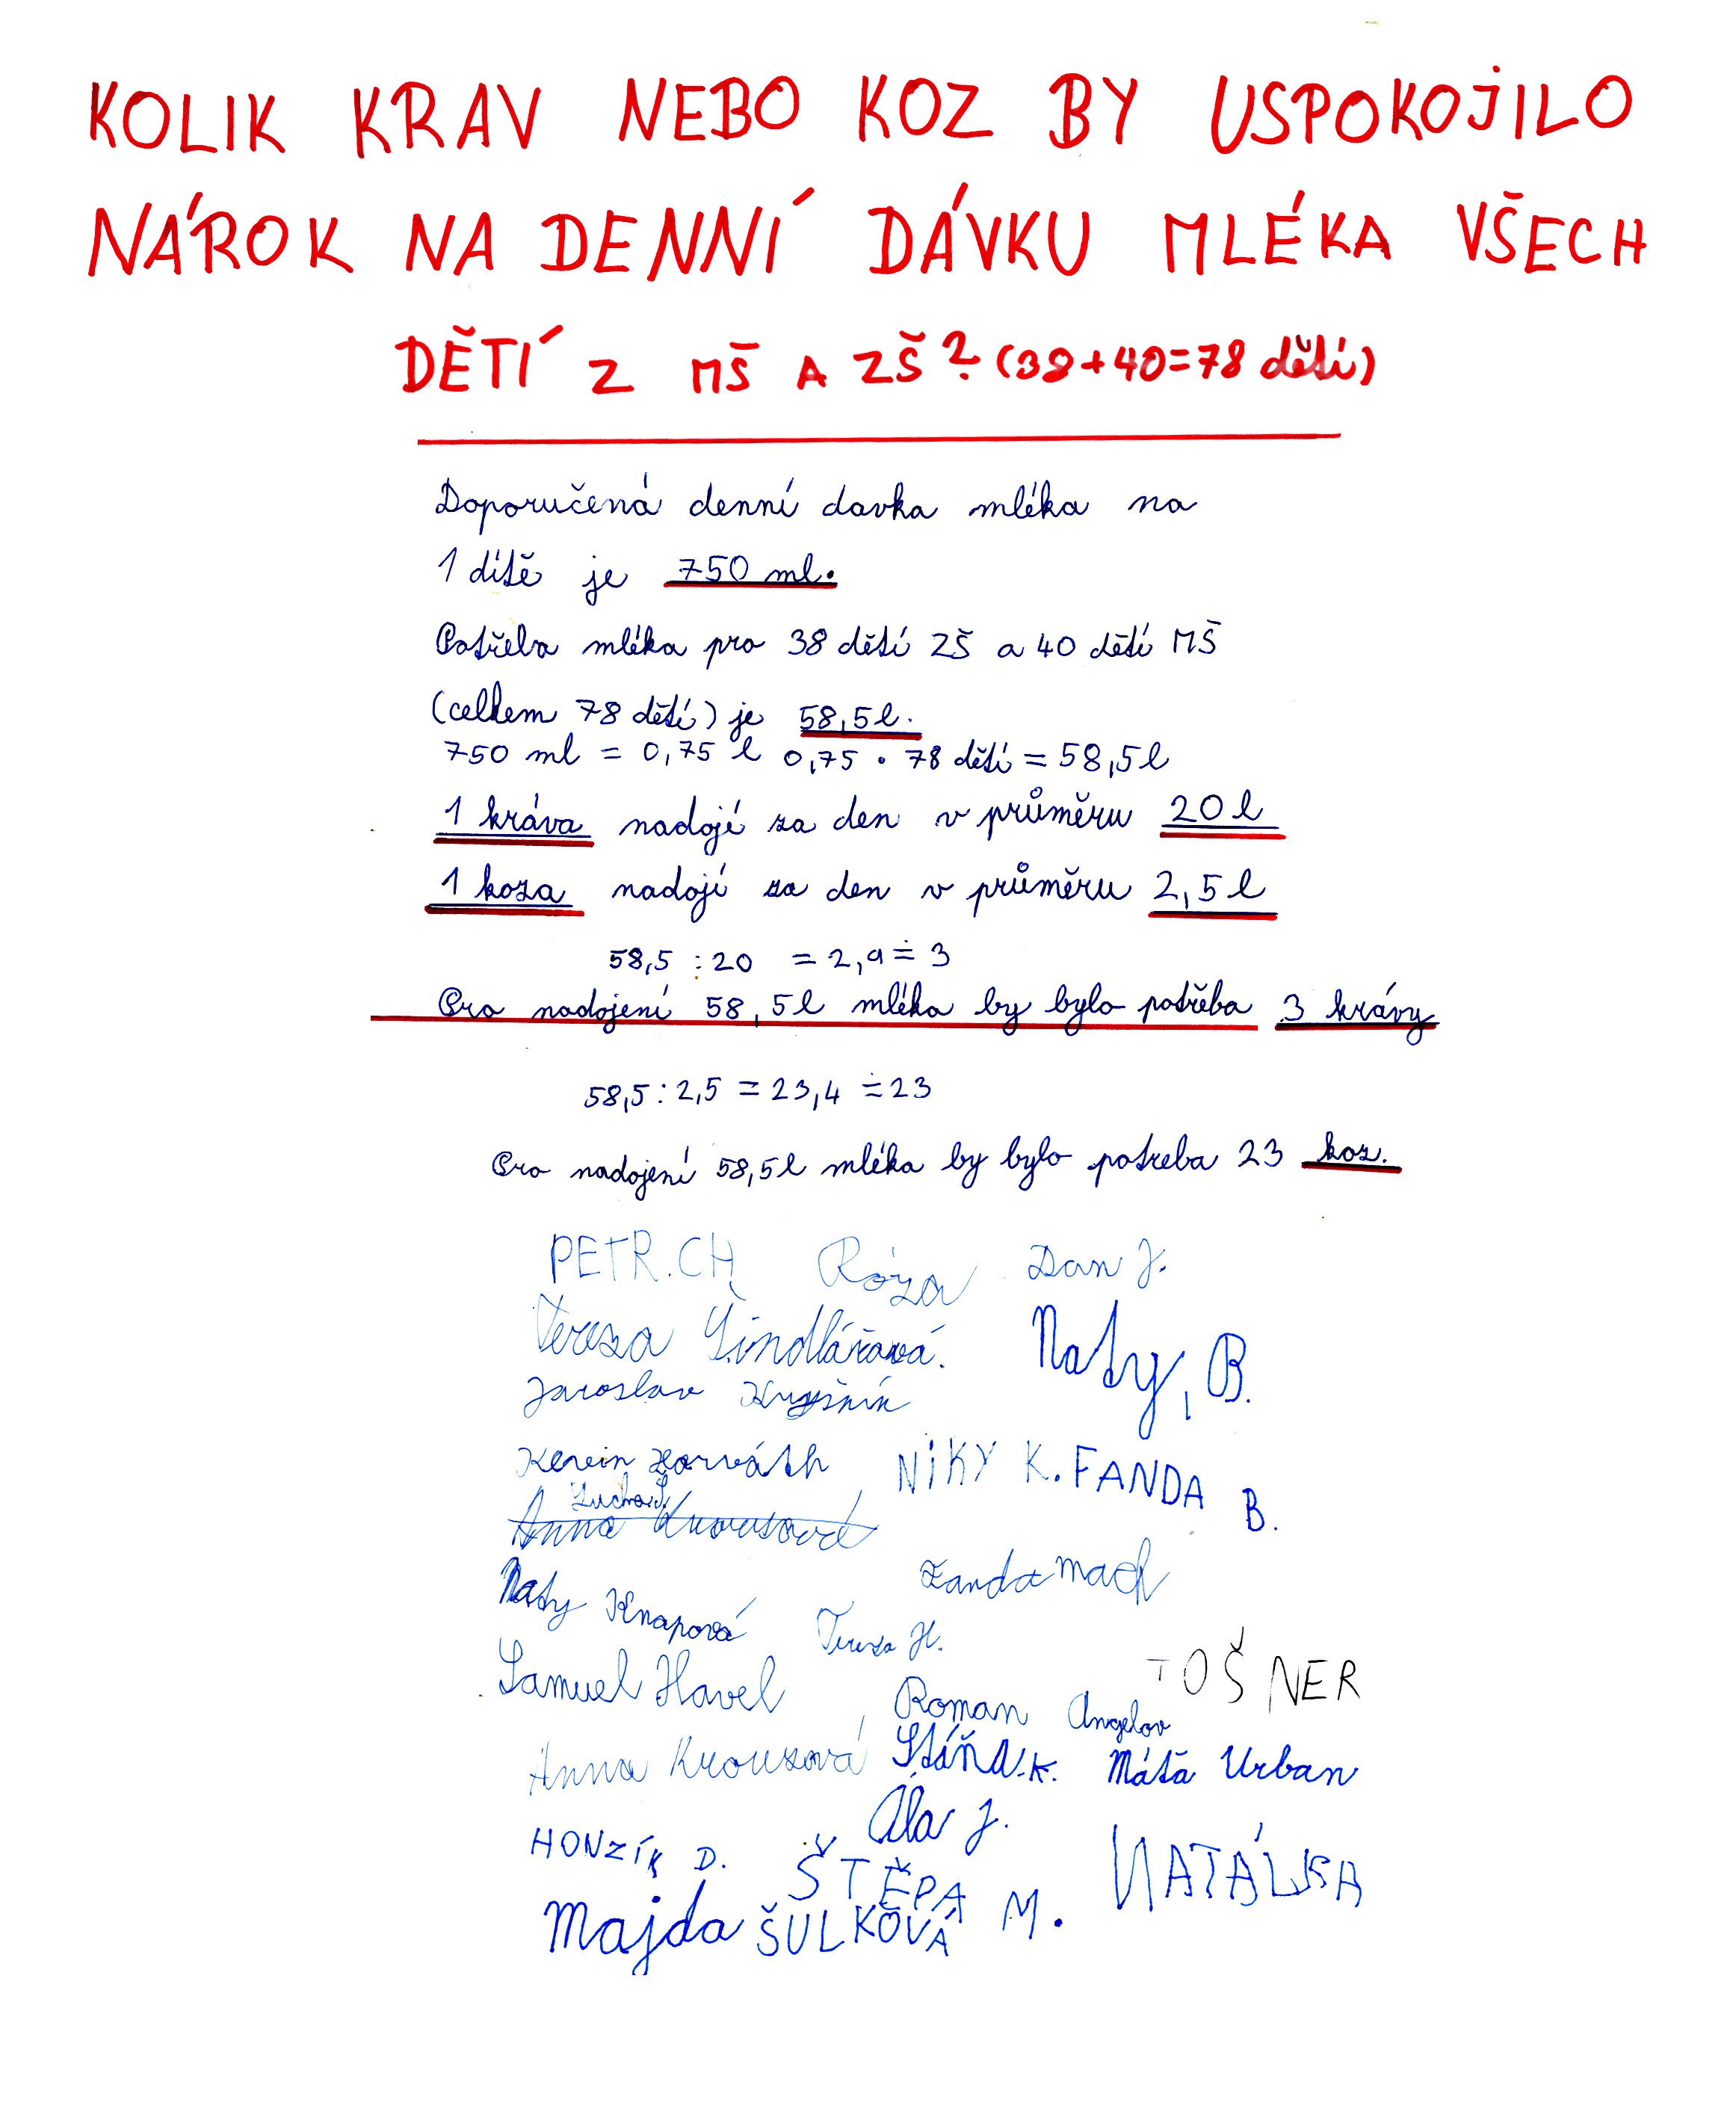 KOLIK KRAV NEBO KOZ BY USPOKOJILO
NÁROK NA DENNÍ DÁVKU MLÉKA VŠECH
DĚTÍ Z MŠ A ZŠ? (38+40=78 dětí)
Doporučená denní davka mléka na
1 dítě je 750 ml.
Potřeba mléka pro 38 dětí ZŠ a 40 dětí MŠ
(celkem 78 dětí) je 58,5l.
750 ml = 0,75 l 0,75 . 78 dětí = 58,5l
1 kráva nadojí za den v průměru 20 l
1 koza nadojí za den v průměru 2,5 l
58,5 : 20 = 2,9 ≐ 3
Pro nadojení 58,5l mléka by bylo potřeba 3 krávy
58,5 : 2,5 = 23,4 ≐ 23
Pro nadojení 58,5l mléka by bylo potreba 23 koz.
PETR.CH Róza Dan J.
Tereza Šindlářová. Naty, B.
Jaroslav
Kevin Horváth NIKY K. FANDA B.
Anna Krousová
Fanda Mach
Naty Knapová Tereza H.
Samuel Havel TOŠNER
Roman Angelov
Anna Krousová Stáňa.K. Máťa Urban
Ála J.
HONZÍK D. ŠTĚPA M. NATÁLKA
Majda ŠULKOVÁ